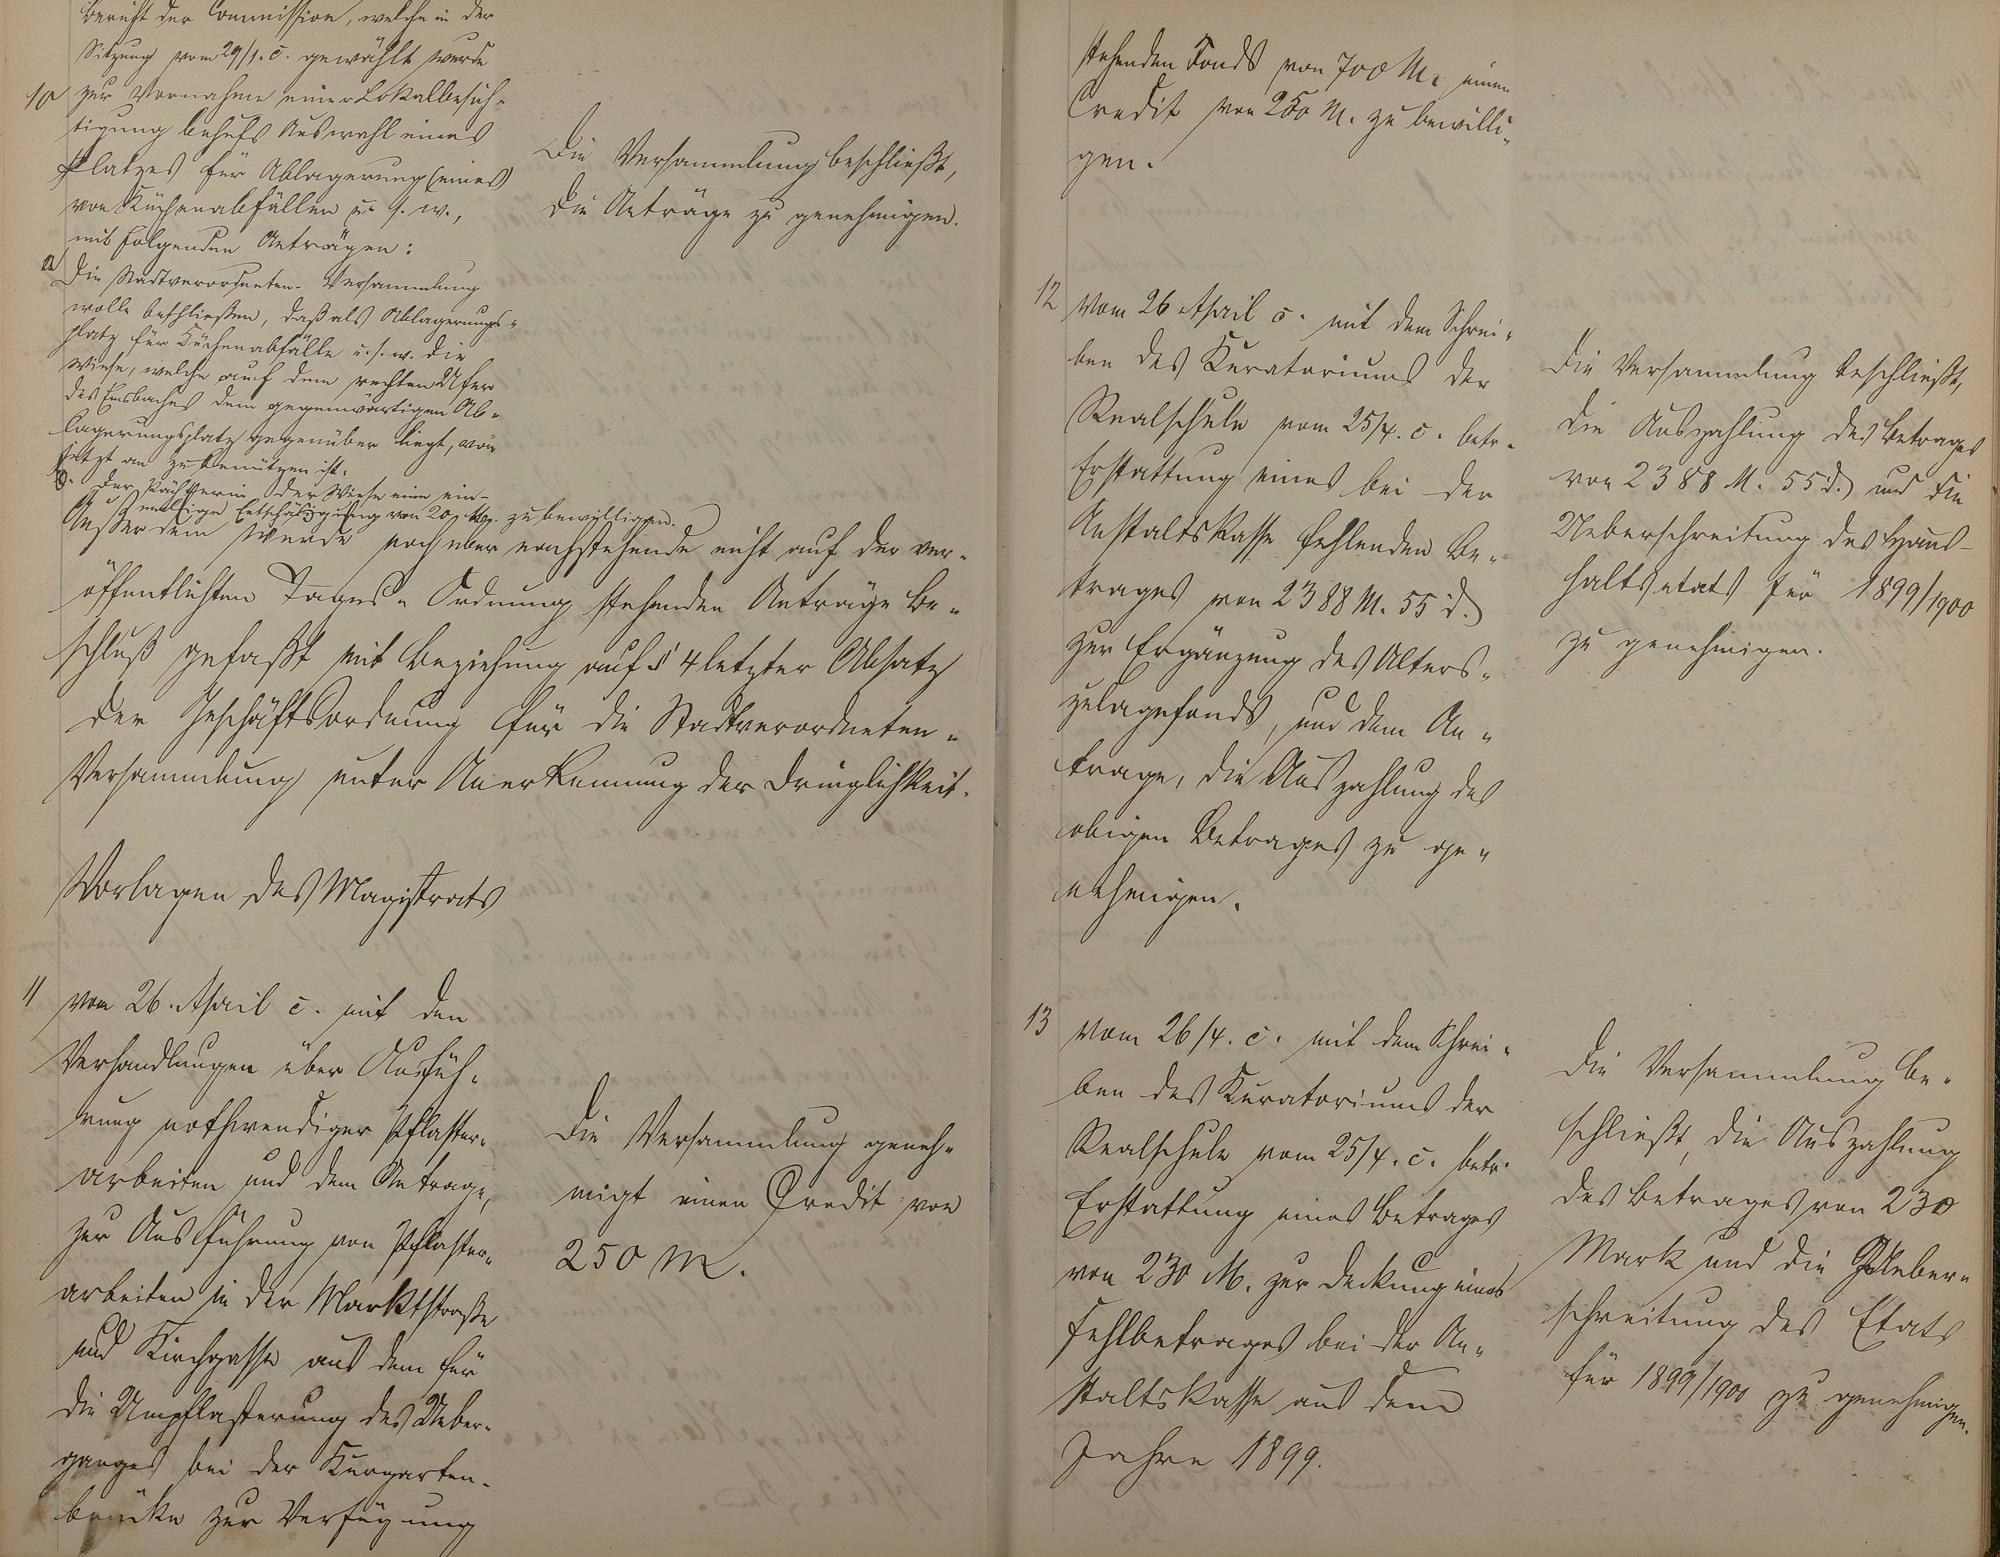 Bericht der Commission, welche in der
Sitzung vom 29/1. c. gewählt wurde
10 zur Vornahme einer Lokalbesich-
tigung behufs Auswahl eines
Platzes für Ablagerung (eines)
von Küchenabfällen u. s. w.,
mit folgenden Anträgen:
a Die Stadtverordneten-Versammlung
wolle beschließen, daß als Ablagerungs-
platz für Küchenabfälle u. s. w. die
Wiese, welche auf dem rechten Ufer
des Emsbaches dem gegenwärtigen Ab-
lagerungsplatz gegenüber liegt, von
jetzt an zu benützen ist.
b. Der Pächterin der Wiese eine ein-
malige Entschädigung von 20 Mk. zu bewilligen.
Die Versammlung beschließt,
die Anträge zu genehmigen.
Außerdem wurde noch über nachstehende nicht auf der ver-
öffentlichten Tages-Ordnung stehenden Anträge Be-
schluß gefaßt mit Beziehung auf § 4 letzter Absatz
der Geschäftsordnung für die Stadtverordneten-
Versammlung unter Anerkennung der Dringlichkeit.
Vorlagen des Magistrats
11 vom 26. April c. mit den
Verhandlungen über Ausfüh-
rung nothwendiger Pflaster-
arbeiten und dem Antrage,
zur Ausführung von Pflaster-
arbeiten in der Marktstraße
und Kirchgasse aus dem für
die Umpflasterung des Ueber-
ganges bei der Kurgarten-
brücke zur Verfügung
Die Versammlung geneh-
migt einen Credit von
250 M.
stehenden Fonds von 700 M. einen
Credit von 250 M. zu bewilli-
gen.
12 vom 26 April c. mit dem Schrei-
ben des Kuratoriums der
Realschule vom 25/4. c. betr.
Erstattung eines bei der
Anstaltskasse fehlenden Be-
trages von 2388 M. 55 d.
zur Ergänzung des Alters-
zulagefonds, und dem An-
trage, die Auszahlung des
obigen Betrages zu ge-
nehmigen.
Die Versammlung beschließt,
die Auszahlung des Betrages
von 2388 M. 55 d. und die
Ueberschreitung des Haus-
haltsetats für 1899/1900
zu genehmigen.
13 vom 26/4. c. mit dem Schrei-
ben des Kuratoriums der
Realschule vom 25/4. c. betr.
Erstattung eines Betrages
von 230 M. zur Deckung eines
Fehlbetrages bei der An-
staltskasse aus dem
Jahre 1899.
Die Versammlung be-
schließt, die Auszahlung
des Betrages von 230
Mark und die Ueber-
schreitung des Etats
für 1899/1900 zu genehmigen.